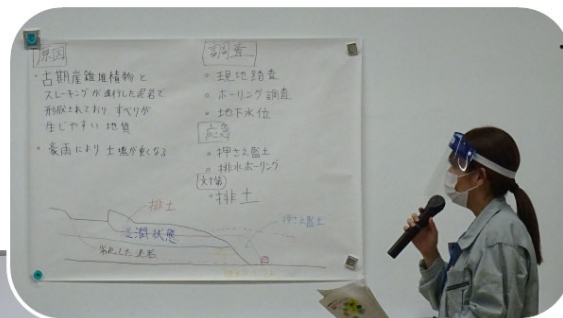 原因
・古期崖錐堆積物と
スレーキングが進行した泥岩で
形成されており すべりが
生じやすい地質
・豪雨により土塊が重くなる
調査
・現地踏査
・ボーリング調査
・地下水位
応急
・押さえ盛土
・排水ボーリング
対策
・排土
排土
湿潤状態
押さえ盛土